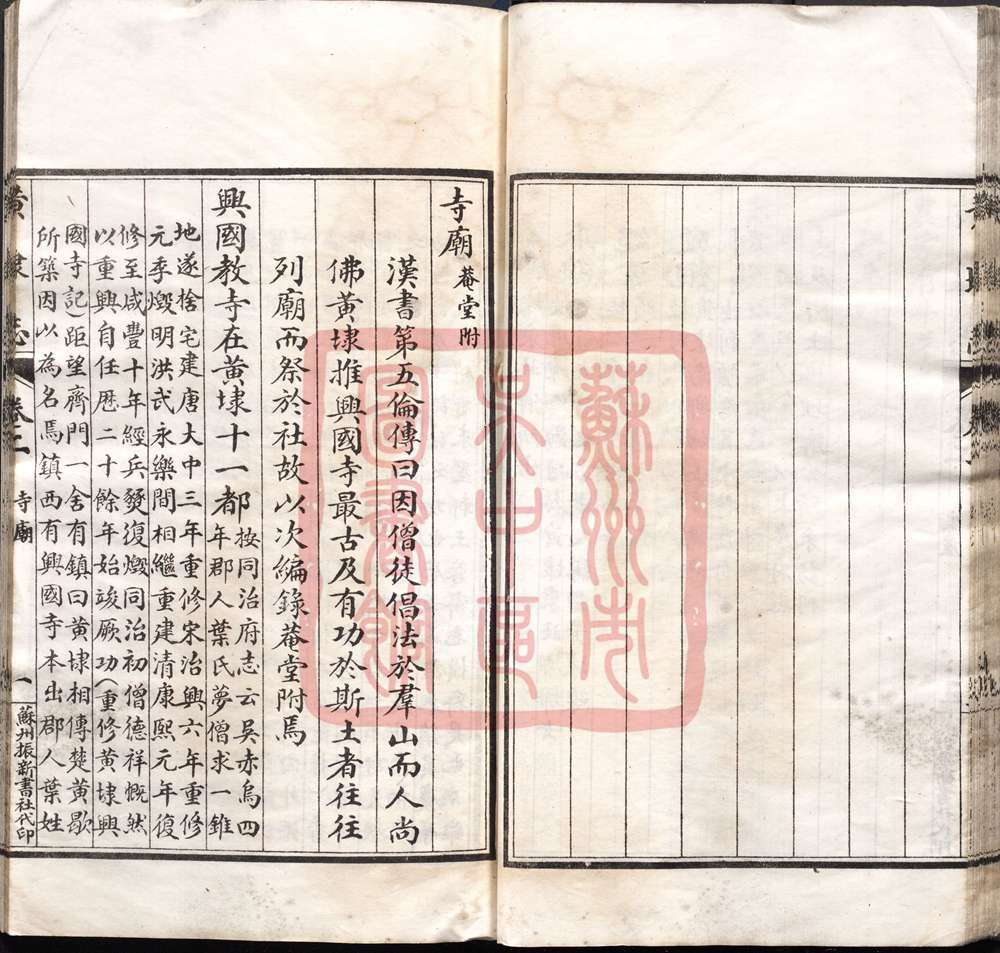 寺廟 菴堂附
漢書第五倫傳曰因僧徒倡法於羣山而人尚
佛黃埭推興國寺最古及有功於斯土者往往
列廟而祭於社故以次編錄菴堂附焉
興國教寺在黃埭十一都
按同治府志云吳赤烏四
年郡人葉氏夢僧求一錐
地遂捨宅建唐大中三年重修宋治興六年重修
元季燬明洪武永樂間相繼重建清康熙元年復
修至咸豐十年經兵燹復燬同治初僧德祥慨然
以重興自任歷二十餘年始竣厥功(重修黃埭興
國寺記)距望齊門一舍有鎮曰黃埭相傳楚黃歇
所築因以為名焉鎮西有興國寺本出郡人葉姓
黃埭志 卷二 寺廟 一 蘇州振新書社代印
蘇州市
吳中區
圖書館